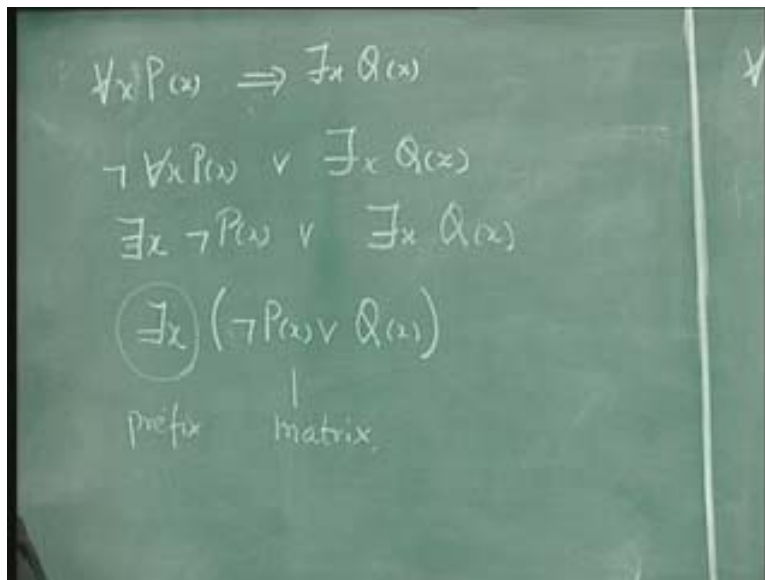 ∀x P(x) ⇒ ∃x Q(x)
¬ ∀x P(x) ∨ ∃x Q(x)
∃x ¬P(x) ∨ ∃x Q(x)
∃x (¬P(x) ∨ Q(x))
prefix matrix
∀